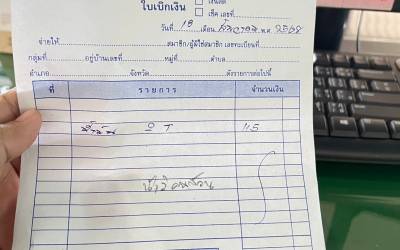 ใบเบิกเงิน
เงินสด
เช็ค เลขที่
วันที่ 18 เดือน ธันวาคม พ.ศ 2568
จ่ายให้ สมาชิก/ผู้มิใช่สมาชิก เลขทะเบียนที่
กลุ่มที่ อยู่บ้านเลขที่ หมู่ที่ ตำบล
อำเภอ จังหวัด ดังรายการต่อไปนี้
ที่ รายการ จำนวนเงิน
O T 115